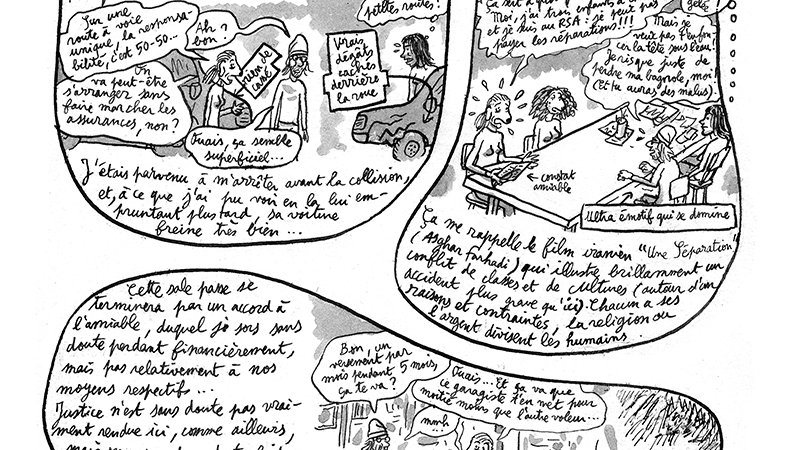 Sur une
route à voie
unique, la responsa-
bilité, c'est 50-50...
Ah?
bon?
petite, routes?
On
va peut-être
s'arranger sans
faire marcher les
assurances, non?
rien de
cassé
Ouais, ça semble
superficiel...
Vrais
dégâts
cachés
derrière
la roue
J'étais parvenu à m'arrêter avant la collision,
et, à ce que j'ai pu voir en la lui em-
pruntant plus tard, sa voiture
freine très bien...
Moi, j'ai trois enfants à
et je suis au RSA: je peux pas
payer les réparations!!!
gelée
Mais je
veux pas t'enfon-
cer la tête sous l'eau!
Je risque juste de
perdre ma bagnole, moi!
(Et tu auras des malus).
← constat
amiable
Ultra émotif qui se domine
Ça me rappelle le film iranien "Une Séparation"
(Asghar Farhadi) qui illustre brillamment un
conflit de classes et de cultures (autour d'un
accident plus grave qu'ici). Chacun a ses
raisons et contraintes, la religion ou
l'argent divisent les humains.
Cette sale passe se
terminera par un accord à
l'amiable, duquel je sors sans
doute perdant financièrement,
mais pas relativement à nos
moyens respectifs...
Justice n'est sans doute pas vrai-
ment rendue ici, comme ailleurs,
Bon, un
versement par
mois pendant 5 mois,
ça te va?
Ouais... Et ça va que
ce garagiste t'en met pour
moitié moins que l'autre voleur...
mmh